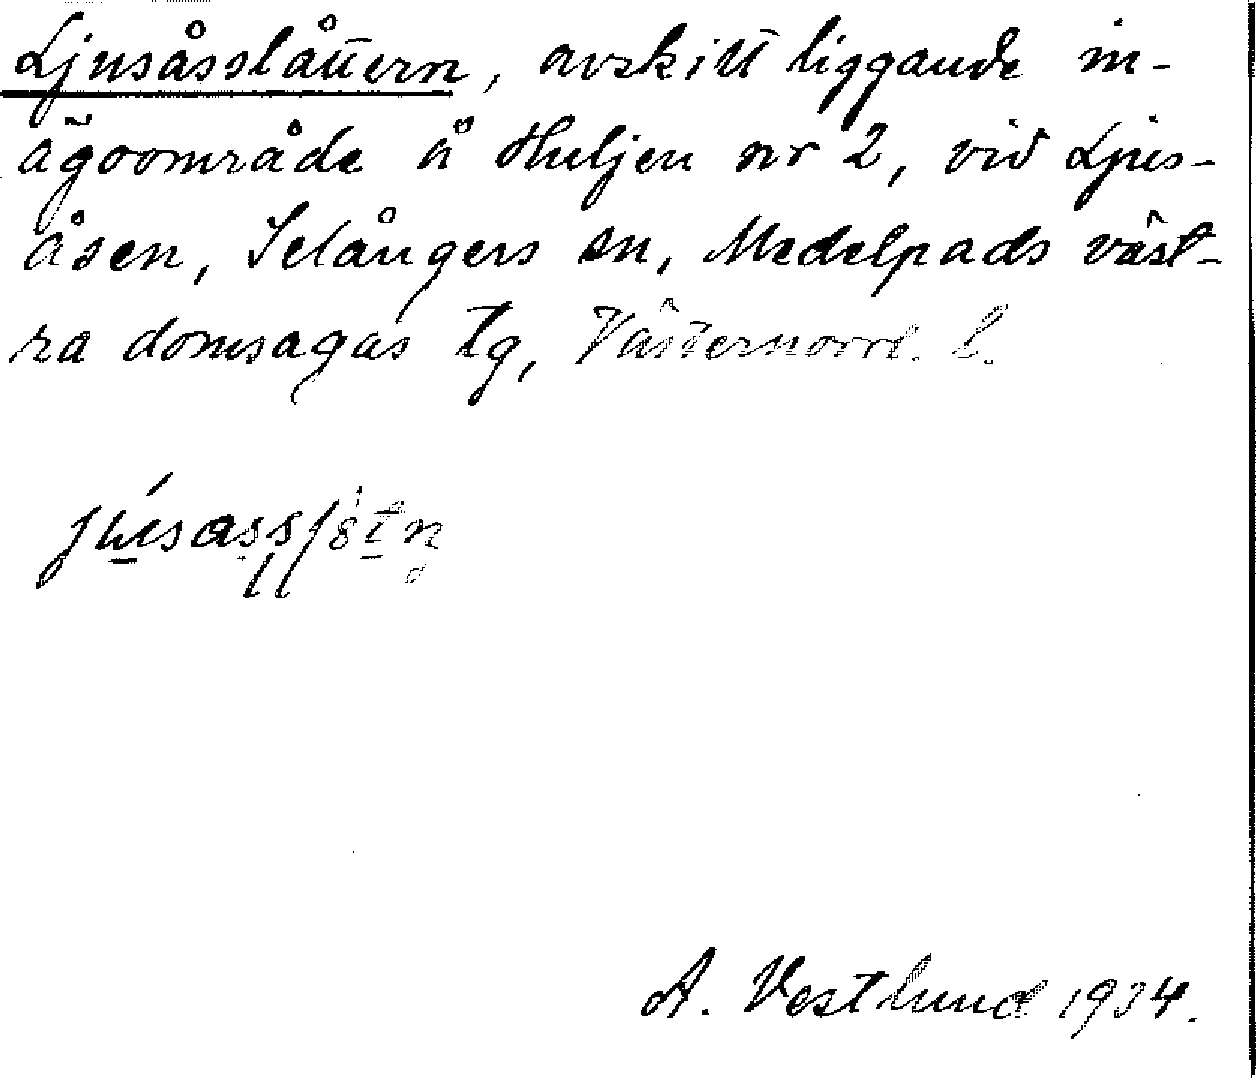 Ljusåsslåttern, avskilt liggande in-
ägoområde å Huljen nr 2, vid Ljus-
åsen, Selångers sn, Medelpads väst-
ra domsagas tg, Västernorrl. l.
A. Vestlund 1934.